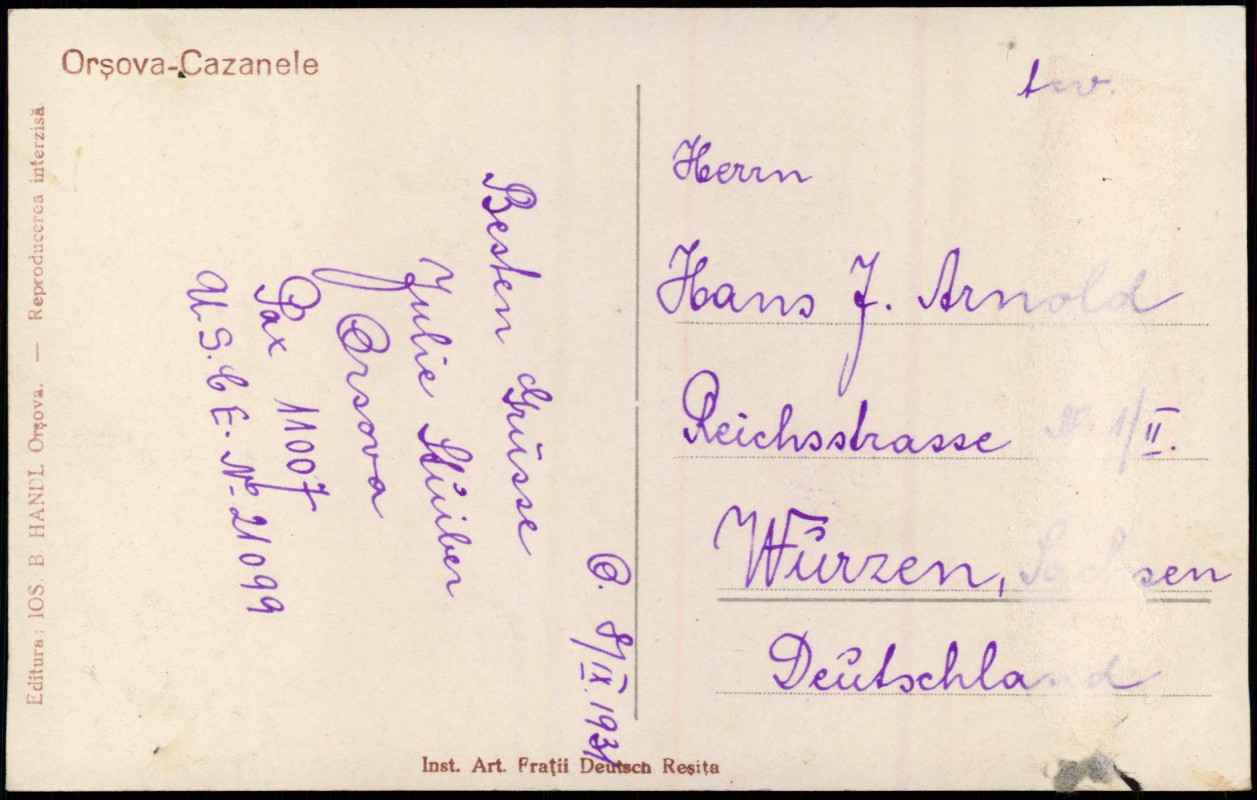 Orșova-Cazanele
Editura: IOS. B HANDL Orșova. — Reproducerea interzisă
Besten Grüsse
Julie Stüiber
Orsova
Pax 11007
U.S.C.E. - No 21099
O. 8/IX.1931
Herrn
Hans J. Arnold
Reichsstrasse No. 1/II.
Wŭrzen, Sachsen
Deŭtschland
Inst. Art. Frații Deutsch Reșița